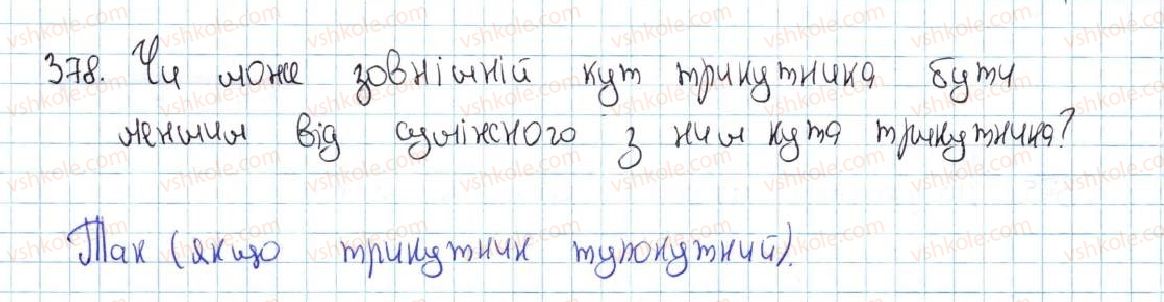 378. Чи може зовнішній кут трикутника бути
меншим від суміжного з ним кута трикутника?
Так (якщо трикутник тупокутний).